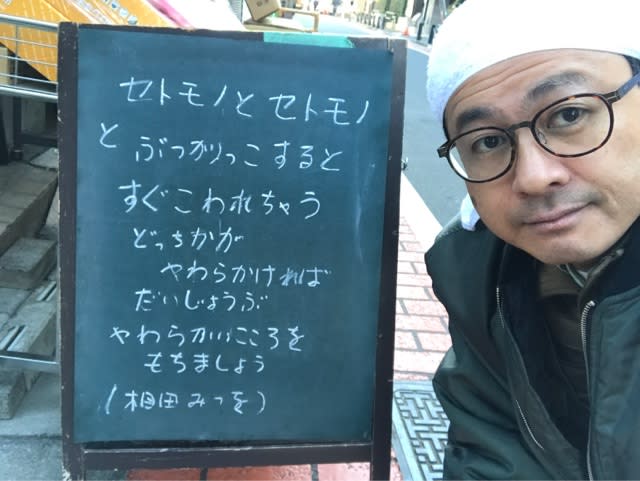 セトモノとセトモノ
と ぶつかりっこすると
すぐこわれちゃう
どっちかが
やわらかければ
だいじょうぶ
やわらかいこころを
もちましょう
(相田みつを)